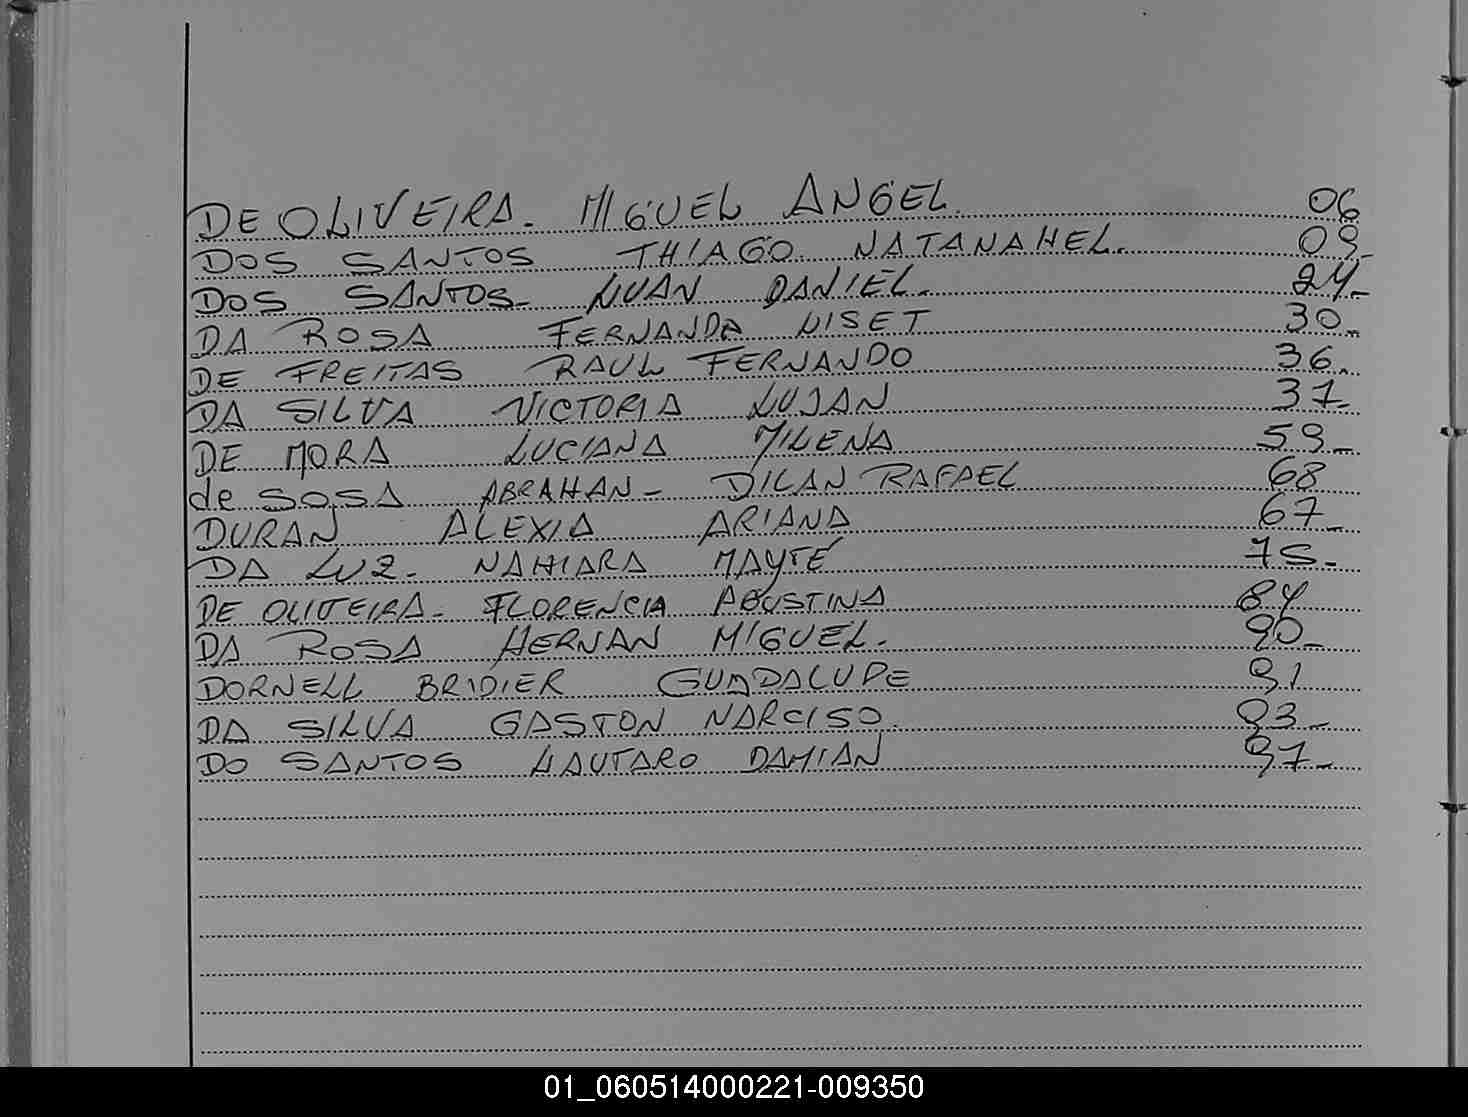 DE OLIVEIRA. MIGUEL ANGEL. 06
DOS SANTOS THIAGO NATANAHEL. 09.
DOS SANTOS LUAN DANIEL. 24.
DA ROSA FERNANDA LISET 30.
DE FREITAS RAUL FERNANDO 36.
DA SILVA VICTORIA LUJAN 37.
DE MORA LUCIANA MILENA 59.
de SOSA ABRAHAN - DILAN RAFAEL 68
DURAN ALEXIA ARIANA 67.
DA LUZ. NAHIARA MAYTÉ 75.
DE OLIVEIRA. FLORENCIA AGUSTINA 84
DA ROSA HERNAN MIGUEL. 90.
DORNELL BRIDIER GUADALUPE 91
DA SILVA GASTON NARCISO. 93.
DO SANTOS LAUTARO DAMIAN 97.
01_060514000221-009350